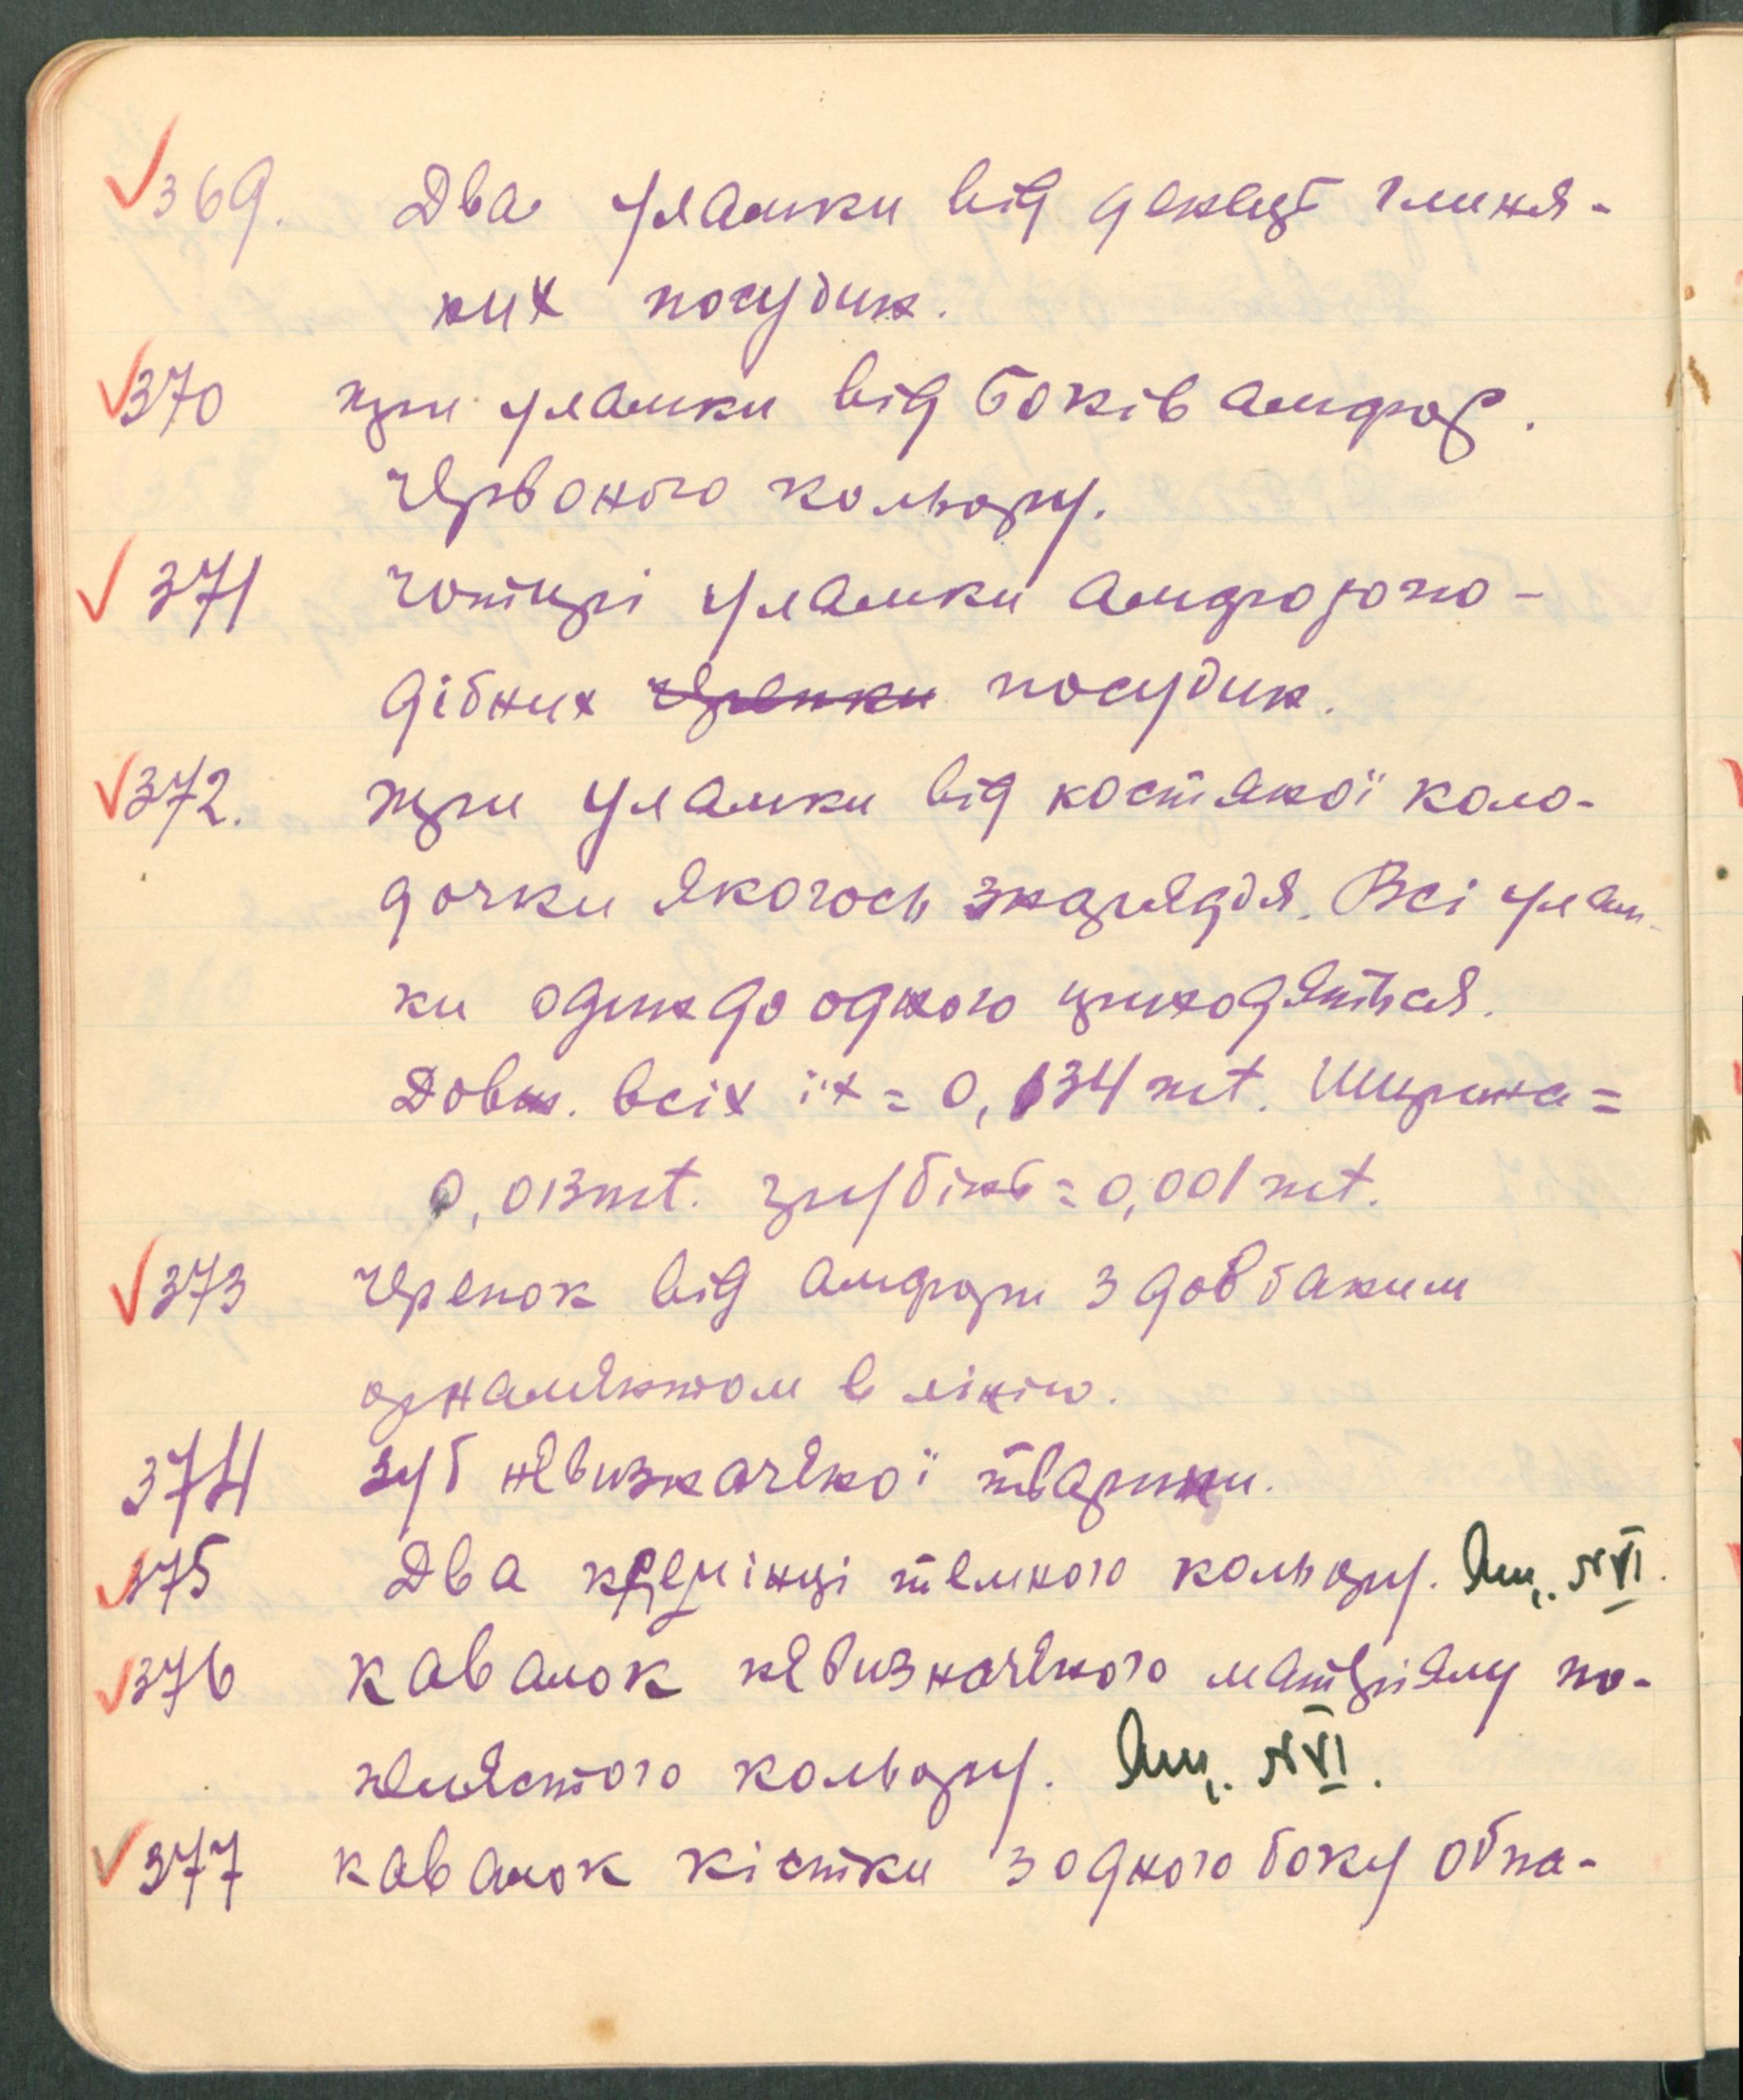 369. Два уламки від денець глиня-
них посудин.
370 три уламки від боків амфор.
червоного кольору.
371 чотирі уламки амфоропо-
дібних черепки посудин.
372. три уламки від костяної коло-
дочки якогось знаряддя. Всі улам-
ки один до одного приходяться.
Довж. всіх їх = 0,134 mt. Ширина =
0,013 mt. грубінь = 0,001 mt.
373 черепок від амфори з довбаним
орнамєнтом в лінію.
374 зуб невизначеної тварини.
375 Два кремінці темного кольору. Ящ. №VI.
376 кавалок невизначеного матеріялу по-
пелястого кольору. Ящ. №VI.
377 кавалок кістки з одного боку обпа-